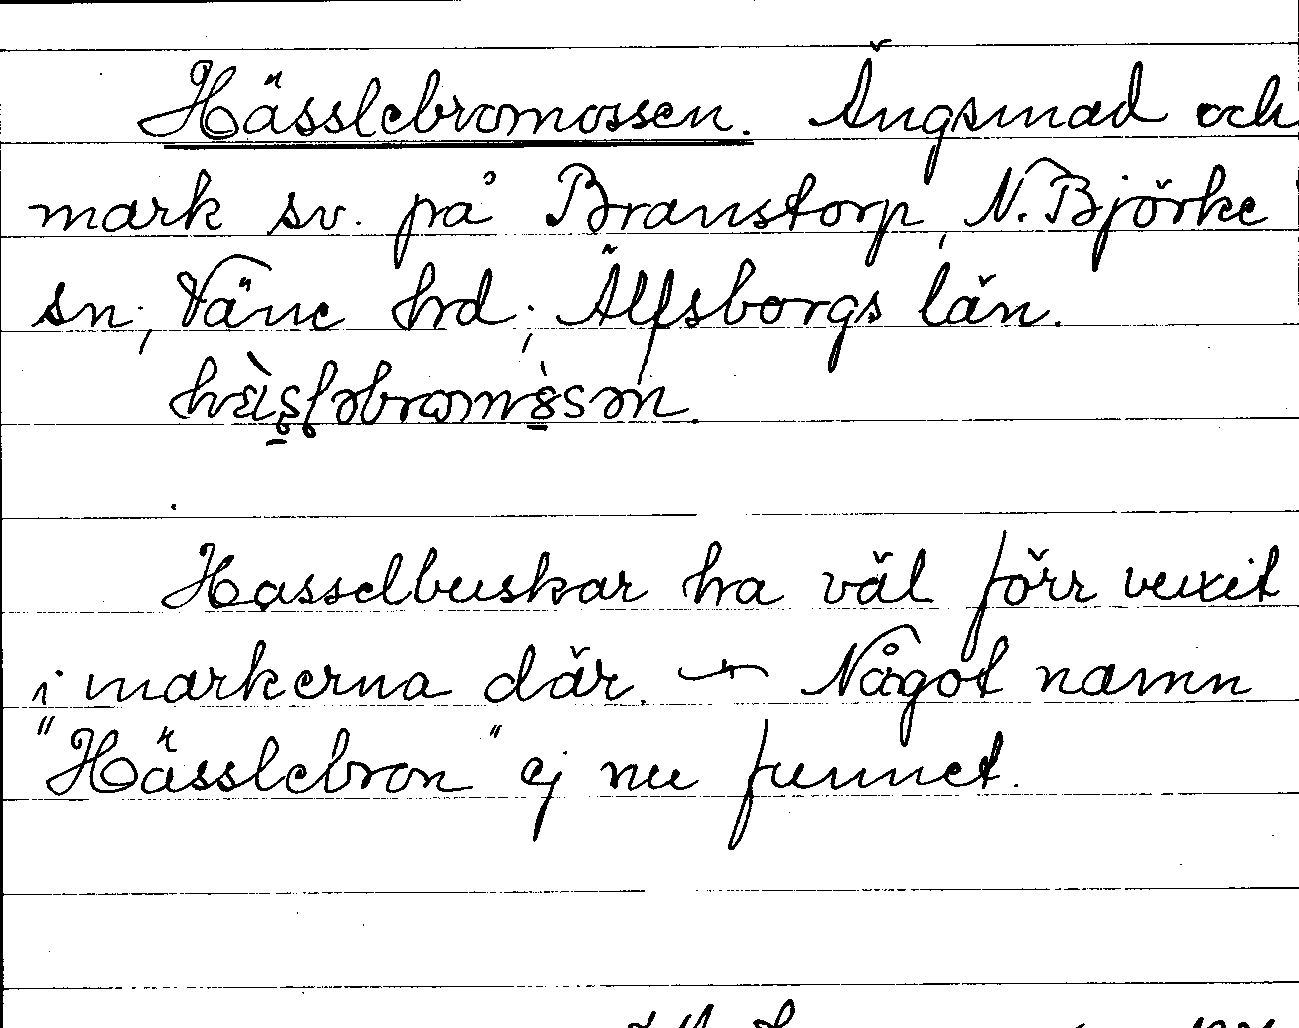 Hässlebromossen. Ängsmad och
mark sv. på Branstorp, N. Björke
sn; Väne hrd; Älfsborgs län.
Hasselbuskar ha väl förr vuxit
i markerna där. — Något namn
"Hässlebron" ej nu funnet.